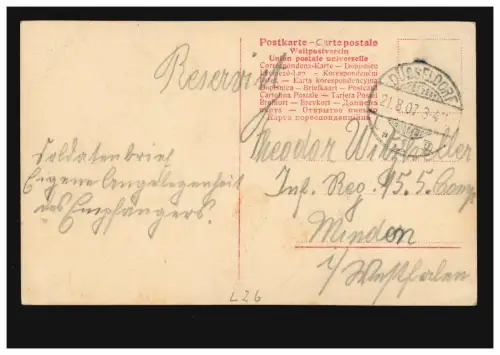 Postkarte – Cartepostale
Weltpostverein
Union postale universelle
Correspondenz-Karte – Dopisnice
Karta korespondencyjna
Dopisnica – Briefkaart – Postcard
Cartolina Postale – Tarjeta Postal
Brefkort – Brevkort
Карта корреспонденцiи
Reservist
DÜSSELDORF
21.8.07
Soldatenbrief
Eigene Angelegenheit
des Empfängers.
Theodor
Inf. Reg. 15 5. Comp
Minden
i/ Westfalen
L26